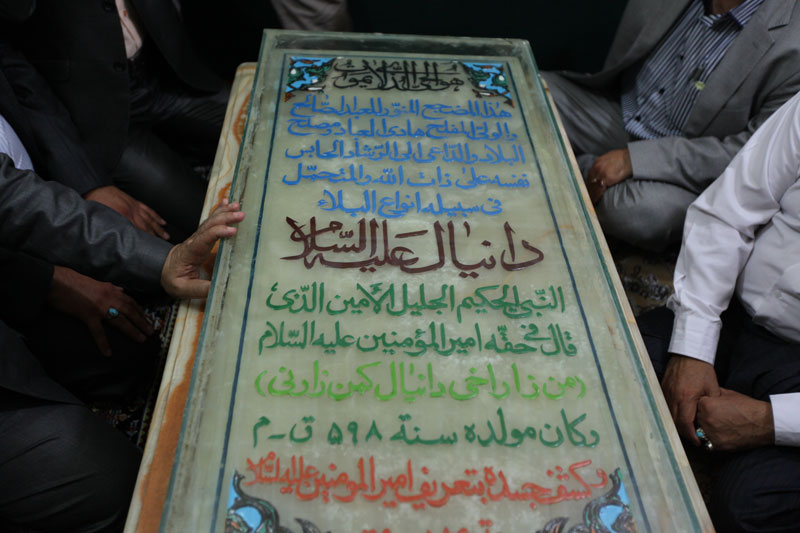 هو الحی الذی لا یموت
هذا المضجع المنور للعبد الصالح
والولی المفلح هادی العباد و مصلح
البلاد والداعی الی الرشاد الحابس
نفسه علی ذات الله والمتحمل
فی سبیله انواع البلاء
دانیال علیه السلام
النبی الحکیم الجلیل الأمین الذی
قال فی حقه امیر المؤمنین علیه السلام
(من زار اخی دانیال کمن زارنی)
وکان مولده سنة ۵۹۸ ق-م
وکشف جسده بتعریف امیر المومنین علیه السلام